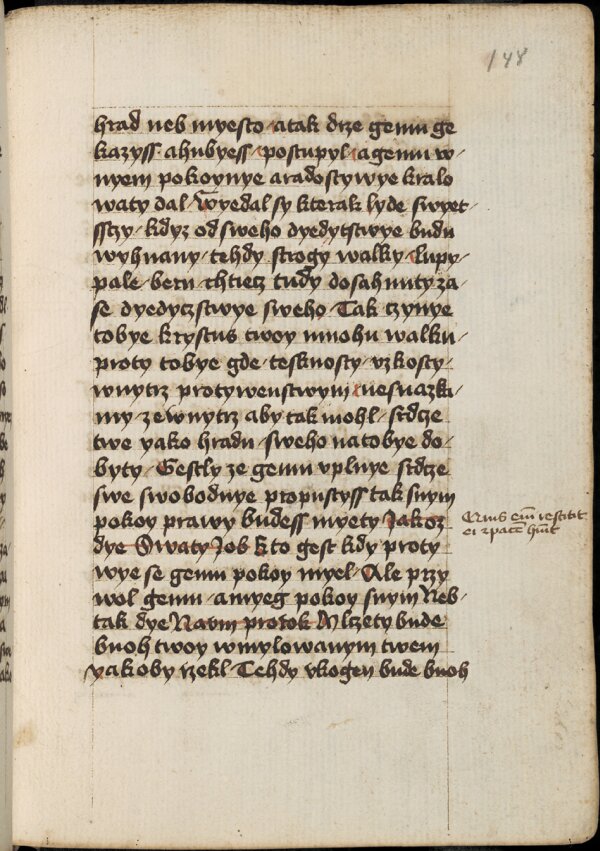 148
hrad neb myesto atak drze gemu ge
kazyss ahubyess postupyl agemu w
nyem pokoynye aradostywye kralo
waty dal Wyedal sy kterak lyde swyet
sstzy kdyz od sweho dyedytstwye budu
wyhnany tehdy strogy walky lupy
pale beru chtiecz tudy dosahnuty za
se dyedyczstwye sweho Tak czynye
tobye krystus twoy mnohu walku
proty tobye gde tesknosty vzkosty
wnytrz protywenstwym nesnazka
my zewnytrz aby tak mohl srdcze
twe yako hradu sweho natobye do
byty Gestly ze gemu vplnye srdcze
swe swobodnye propustyss tak snym
pokoy prawy budess myety Jakoz
dye Swaty Job Kto gest kdy proty
wye se gemu pokoy myel Ale przy
wol gemu amyeg pokoy snym Neb
tak dye Naum prorok Mlzety bude
buoh twoy wmylowanym twem
yakoby rzekl Tehdy vkogen bude buoh